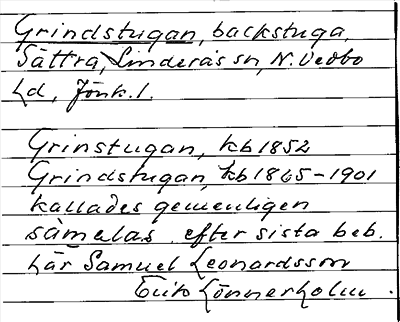 Grindstugan, backstuga,
Sättra, Linderås sn, N. Vedbo
hd, Jönk. l.
Grinstugan, kb 1852
Grindstugan, kb 1865-1901
kallades gemenligen
sämelas efter sista beb.
här Samuel Leonardsson
Erik Lönnerholm.